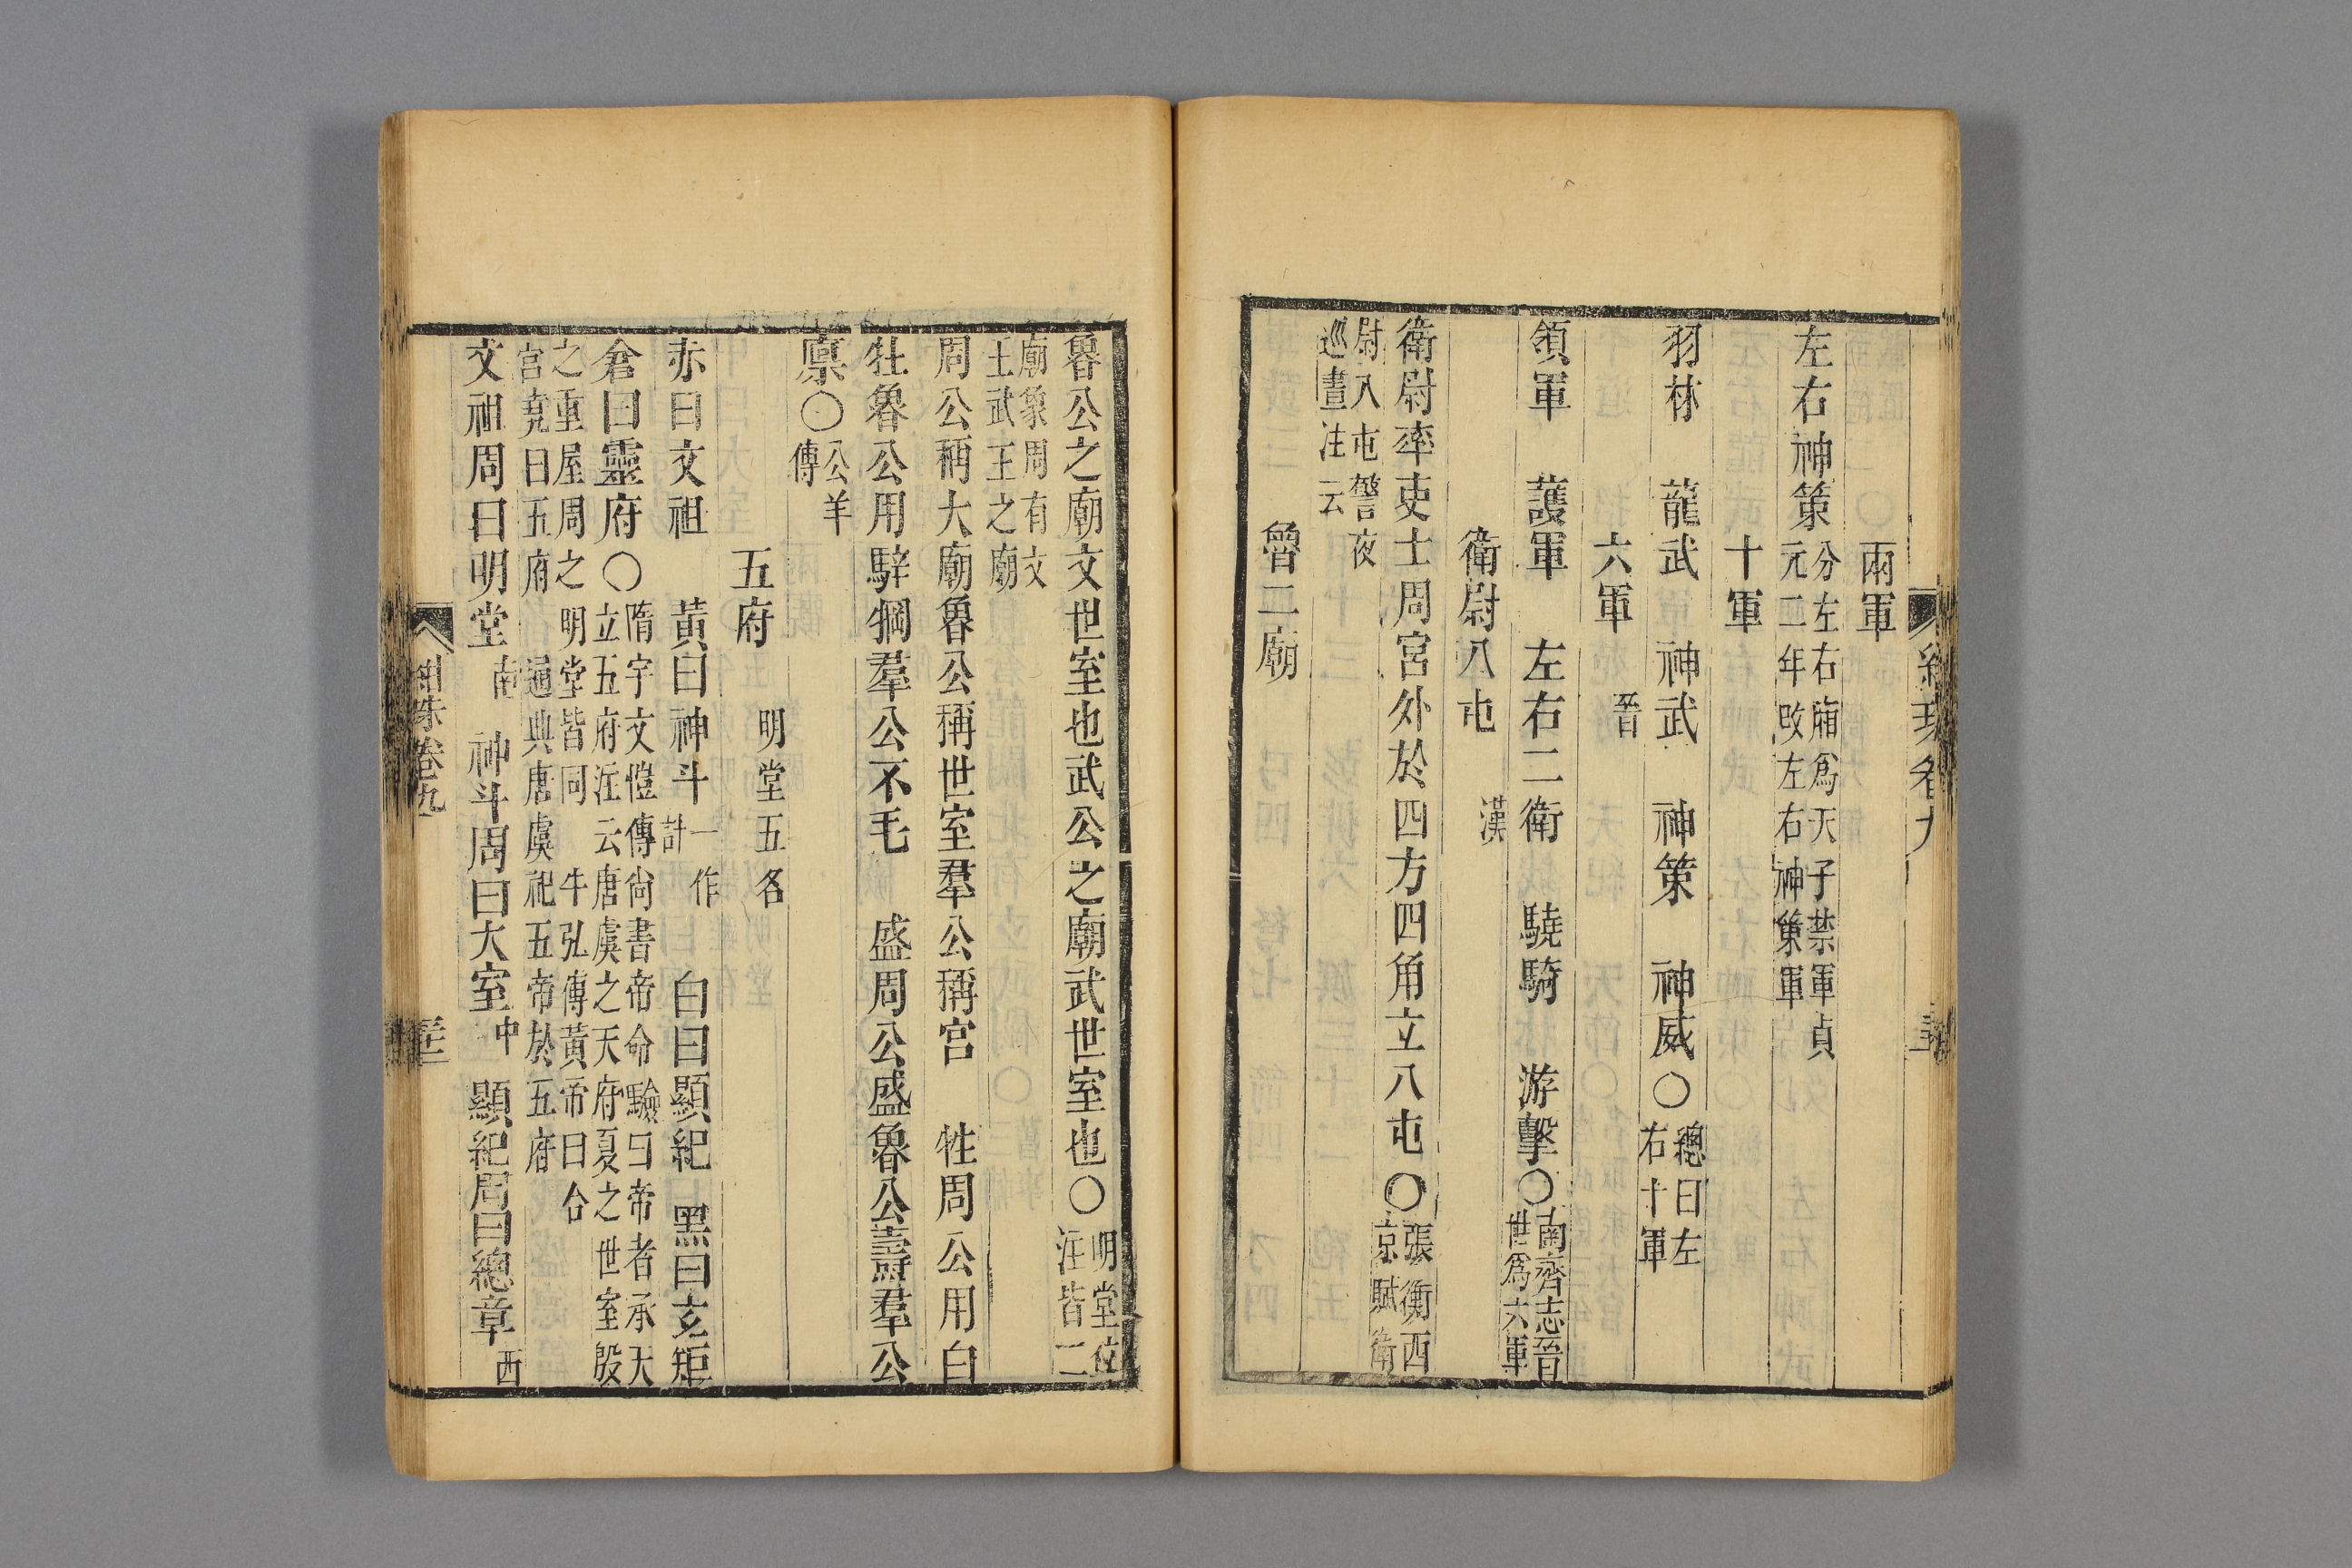 兩軍
左右神策分左右廂爲天子禁軍貞
元二年改左右神策軍
十軍
羽林 龍武 神武 神策 神威〇總曰左
右十軍
六軍晉
領軍 護軍 左右二衛 驍騎 游擊〇南齊志晉
世爲六軍
衛尉八屯漢
衛尉率吏士周宮外於四方四角立八屯〇張衡西
京賦衛
尉入屯警夜
巡晝注云
魯二廟
魯公之廟文世室也武公之廟武世室也〇明堂位
注皆二
廟象周有文
王武王之廟
周公稱大廟魯公稱世室羣公稱宮 牲周公用白
牡魯公用騂犅羣公不毛 盛周公盛魯公燾羣公
廪〇公羊
傳
五府明堂五名
赤曰文祖 黃曰神斗一作
計 白曰顯紀 黑曰玄矩
倉曰靈府〇隋宇文愷傳尚書帝命驗曰帝者承天
立五府注云唐虞之天府夏之世室殷
之重屋周之明堂皆同 牛弘傳黃帝曰合
宮堯曰五府 通典唐虞祀五帝於五府
文祖周曰明堂南 神斗周曰大室中 顯紀周曰總章西
紺珠卷九